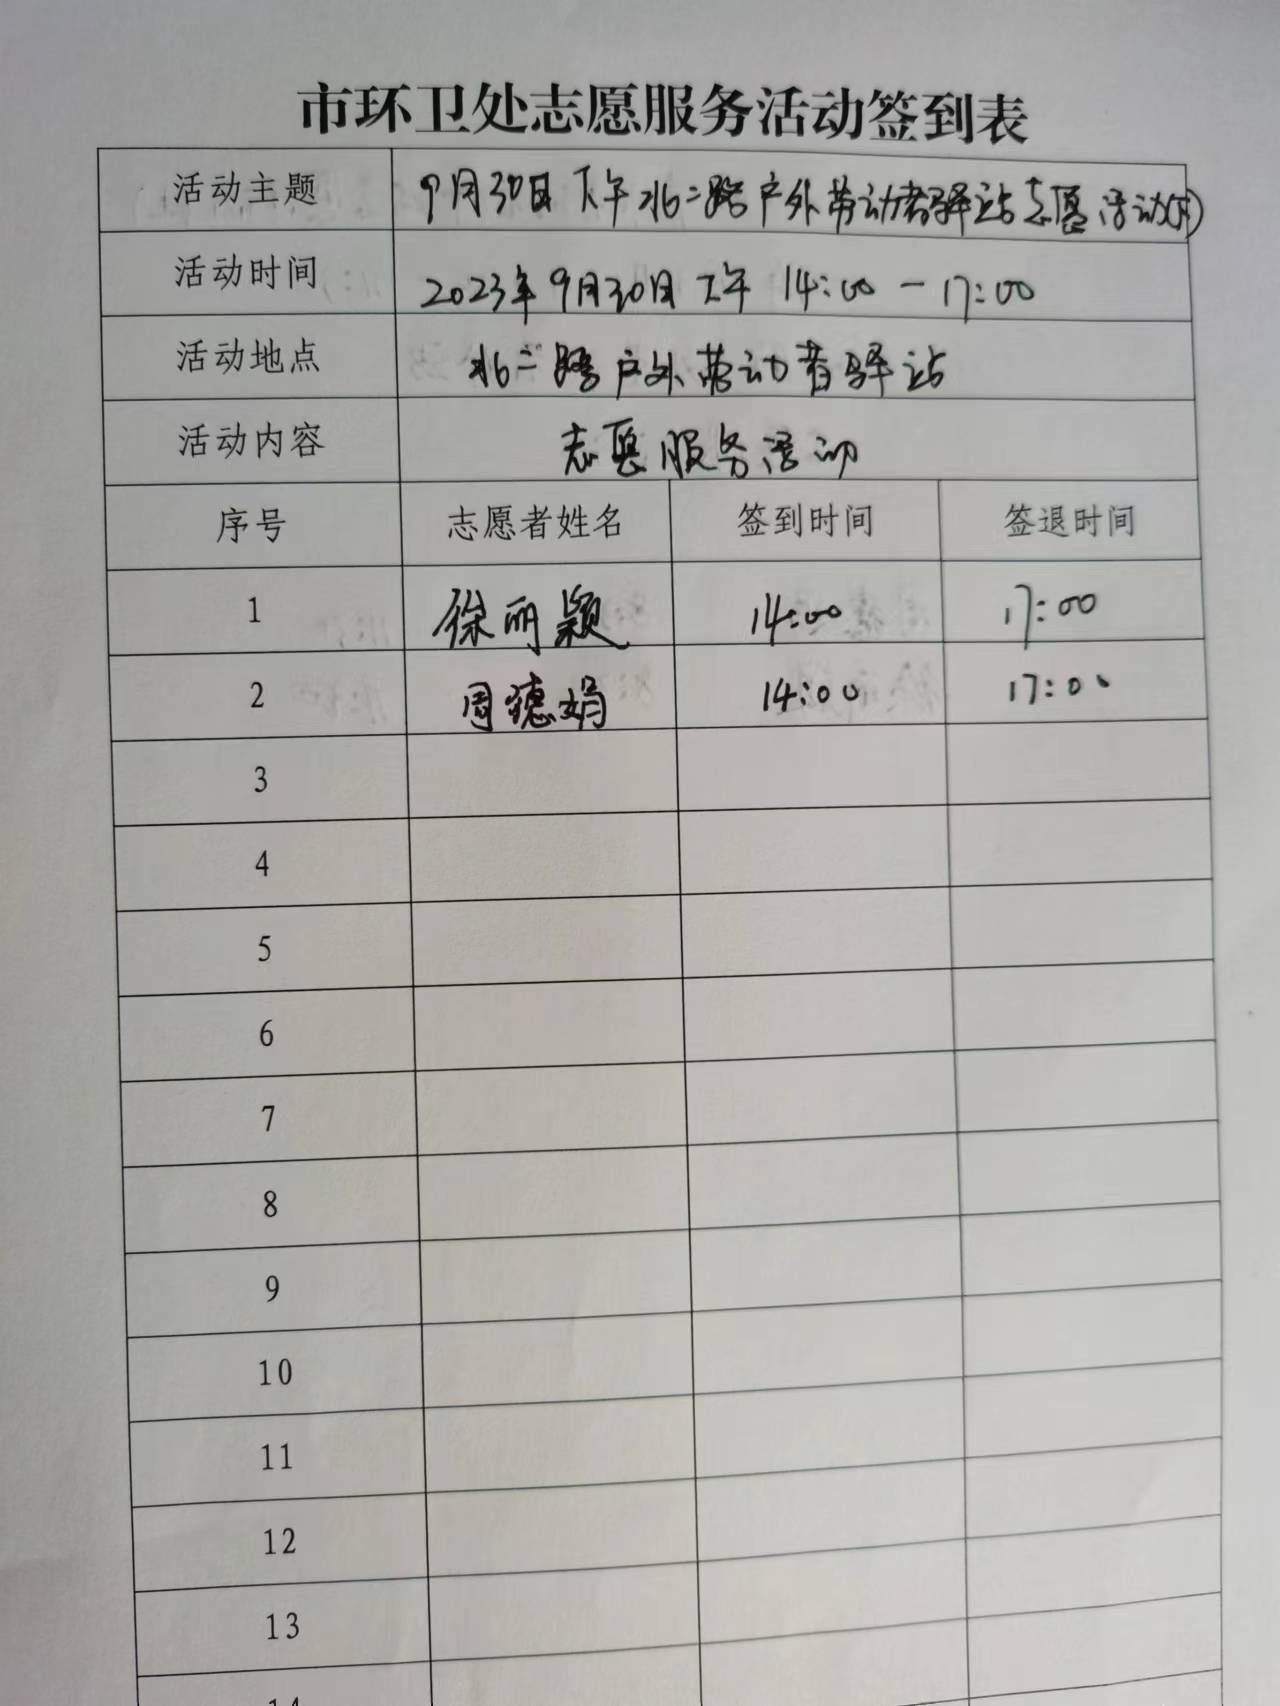 市环卫处志愿服务活动签到表
活动主题 9月30日下午北二路户外劳动者驿站志愿活动
活动时间 2023年9月30日下午 14:00-17:00
活动地点 北二路户外劳动者驿站
活动内容 志愿服务活动
序号 志愿者姓名 签到时间 签退时间
1 徐丽颖 14:00 17:00
2 周德娟 14:00 17:00
3
4
5
6
7
8
9
10
11
12
13
14